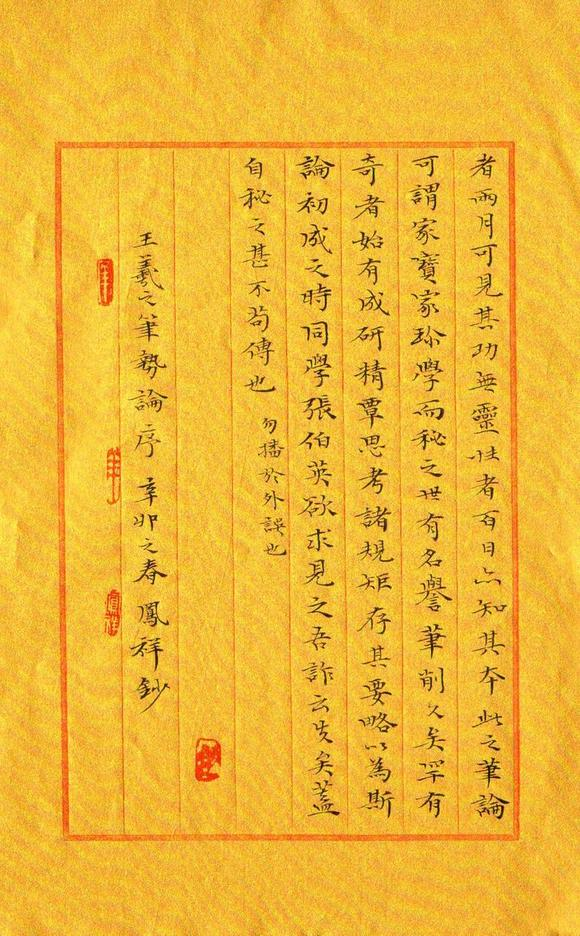 者兩月可見其功無靈性者百日亦知其本此之筆論
可謂家寶家珍學而秘之世有名譽筆削久矣罕有
奇者始有成研精覃思考諸規矩存其要略以為斯
論初成之時同學張伯英欲求見之吾詐云失矣蓋
自秘之甚不苟傳也 勿播於外誤也
王羲之筆勢論序 辛卯之春 鳳祥鈔